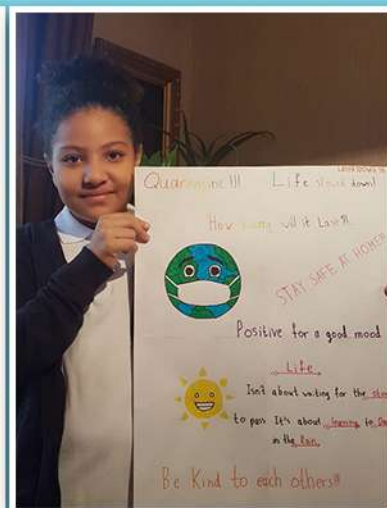 Quarantine!!! Life slowed down!
How long will it Last?!
STAY SAFE AT HOME!!!
Positive for a good mood
Life
Isn't about waiting for the
to pass It's about learning to
in the Rain.
Be Kind to each others!!!